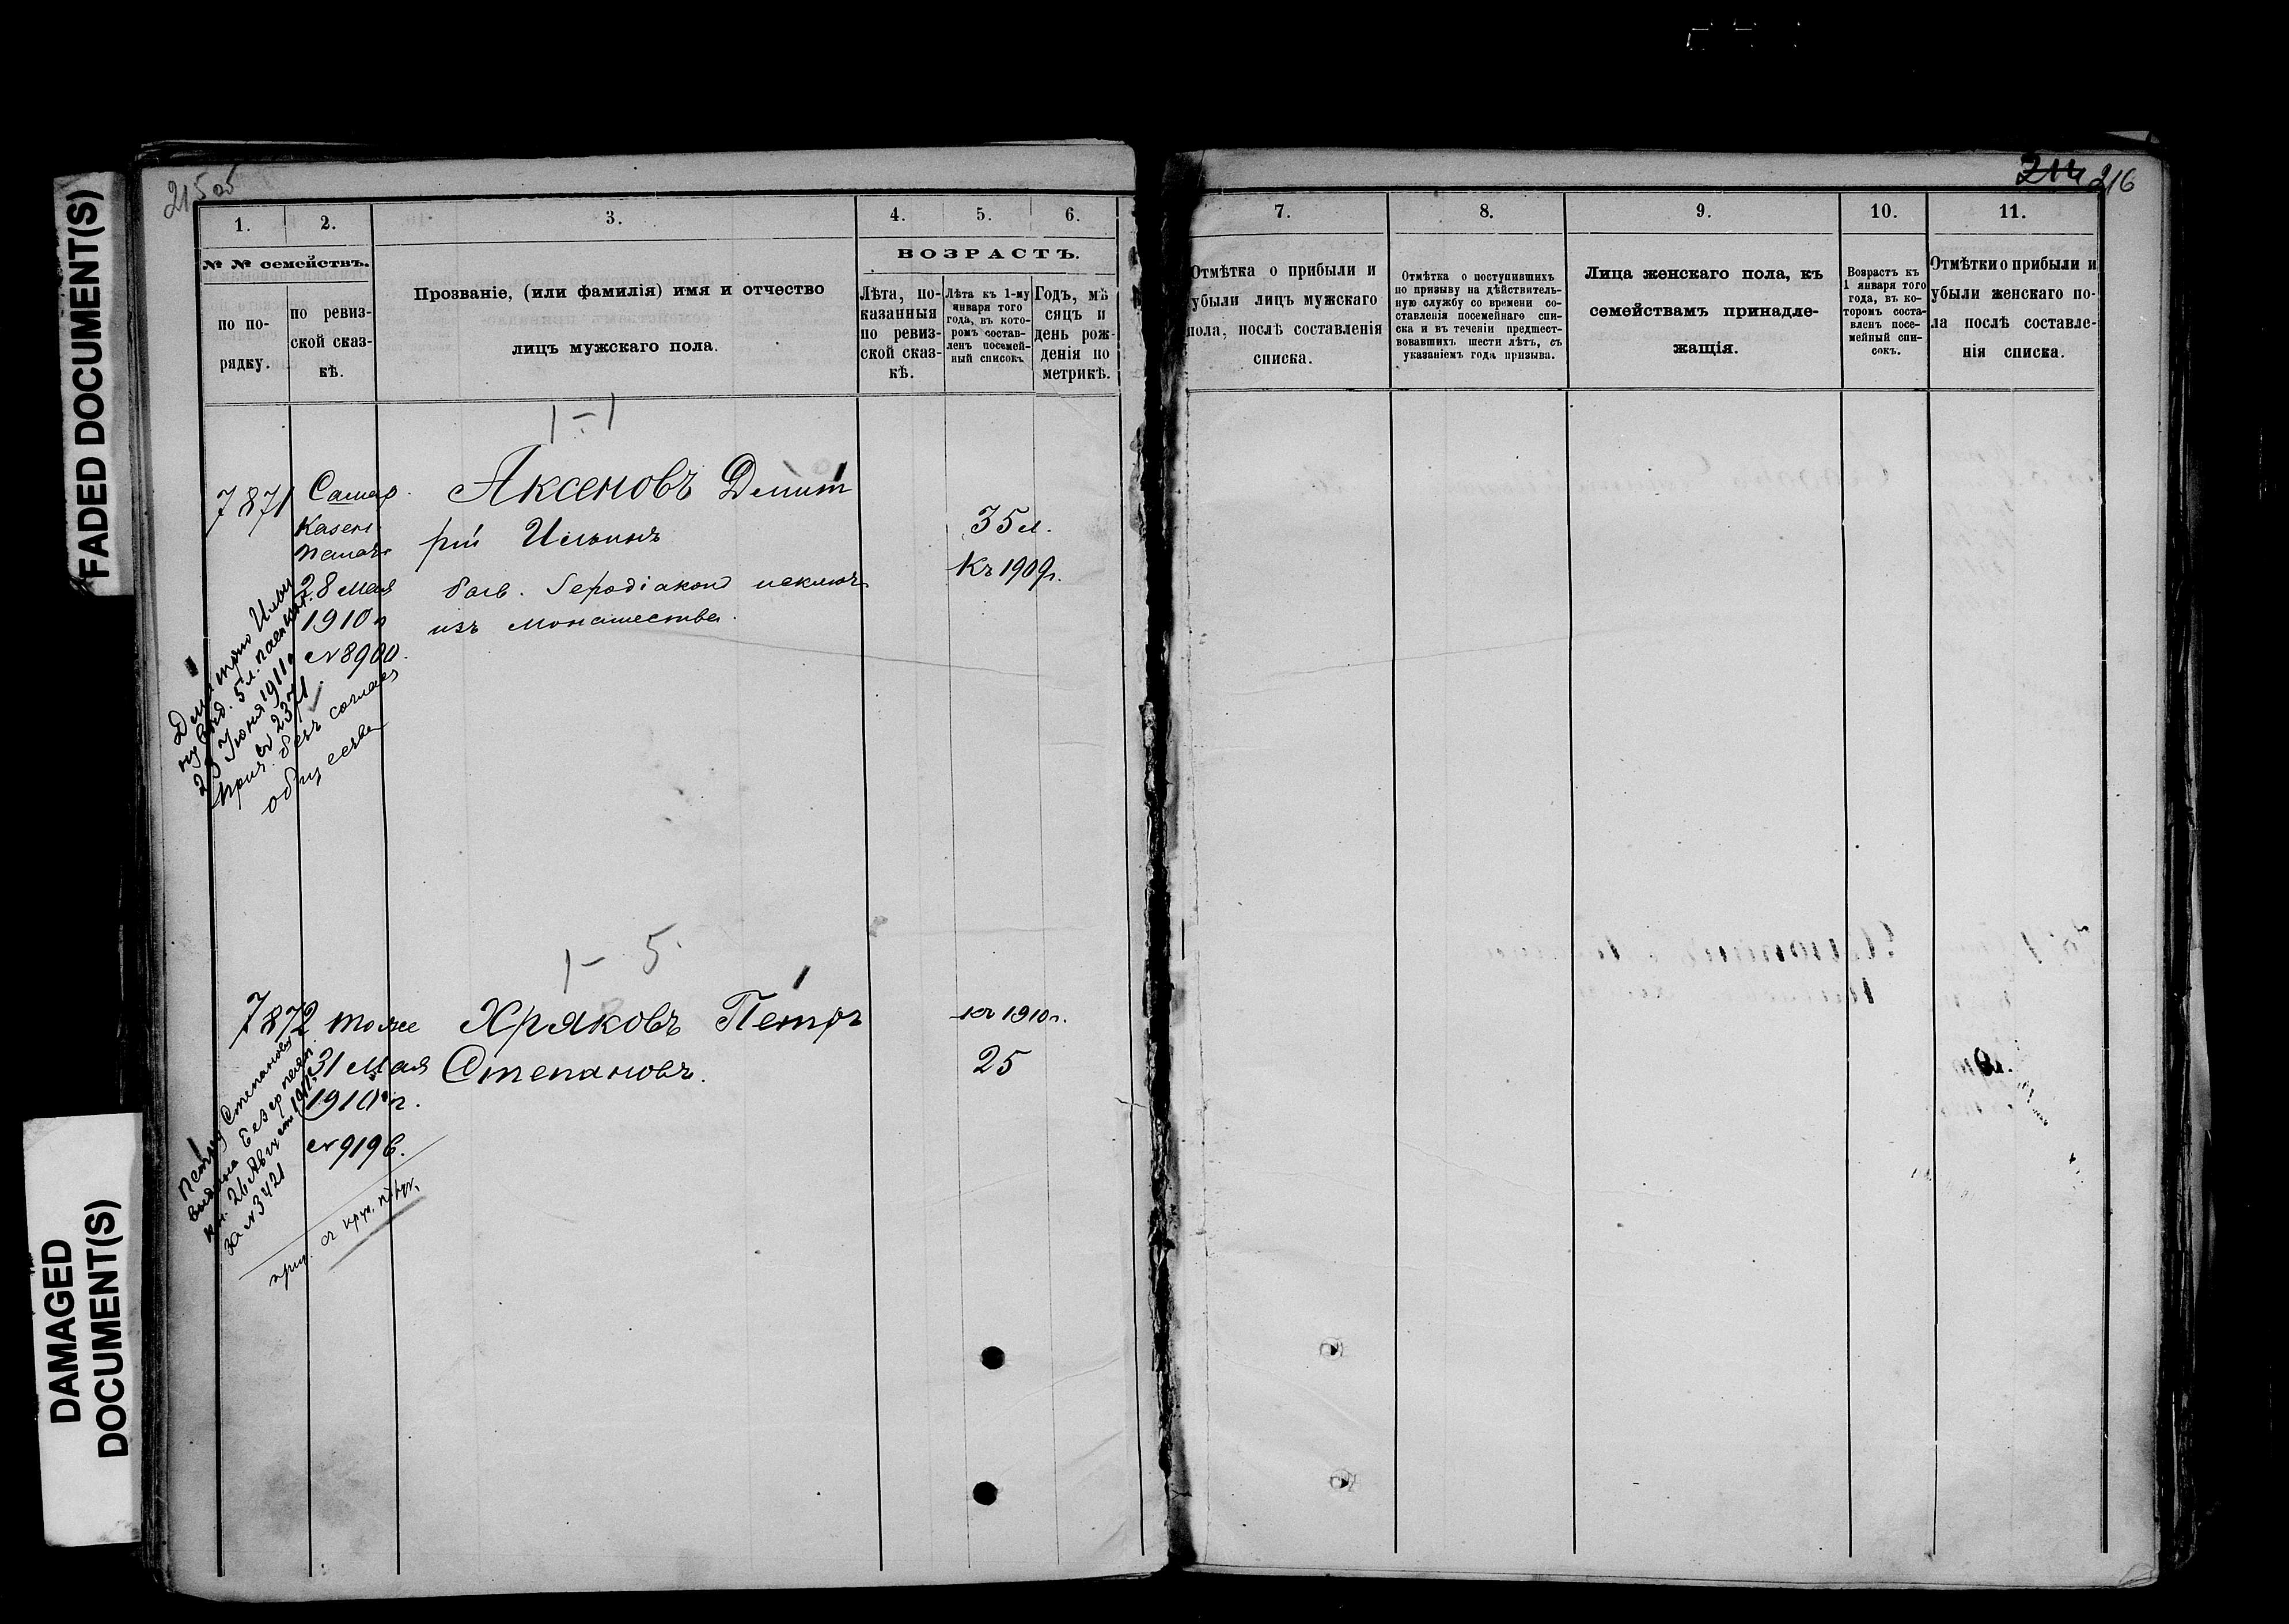 FADED DOCUMENT(S)
DAMAGED
DOCUMENT(S)
215об
1.
2.
3.
4.
5.
6.
№ № семействъ.
по по-
рядку.
по ревиз-
ской сказ-
кѣ.
Прозваніе, (или фамилія) имя и отчество
лицъ мужскаго пола.
ВОЗРАСТЪ.
Лѣта, по-
казанныя
по ревиз-
ской сказ-
кѣ.
Лѣта къ 1-му
января того
года, въ кото-
ромъ состав-
ленъ посемей-
ный списокъ.
Годъ, мѣ
сяцъ и
день рож-
денія по
метрикѣ.
1-1
7871
Самар.
Казен.
Палат.
28 Мая
1910 г
№ 8900.
Аксеновъ Димит
рій Ильинъ
бывш. Іеродіаконъ исключ.
изъ монашества.
35 л.
Къ 1909г.
Димитрію Ильи
ну выд. 5 л. паспорт.
23 Іюня 1911 г
№ 2371
прич. безъ согласія
общества
1- 5.
7872
тоже
31 Мая
1910 г.
№ 9196.
Хряковъ Петръ
Степановъ.
къ 1910г.
25
Петру Степанову
выдана
кн. 26 Августа 1911г
за № 3421
214 216
7.
8.
9.
10.
11.
Отмѣтка о прибыли и
убыли лицъ мужскаго
пола, послѣ составленія
списка.
Отмѣтка о поступившихъ
по призыву на дѣйствитель-
ную службу со времени со-
ставленія посемейнаго спи-
ска и въ теченіи предшест-
вовавшихъ шести лѣтъ, съ
указаніемъ года призыва.
Лица женскаго пола, къ
семействамъ принадле-
жащія.
Возрастъ къ
1 января того
года, въ ко-
торомъ соста-
вленъ посе-
мейный спи-
сокъ.
Отмѣтки о прибыли и
убыли женскаго по-
ла послѣ составле-
нія списка.